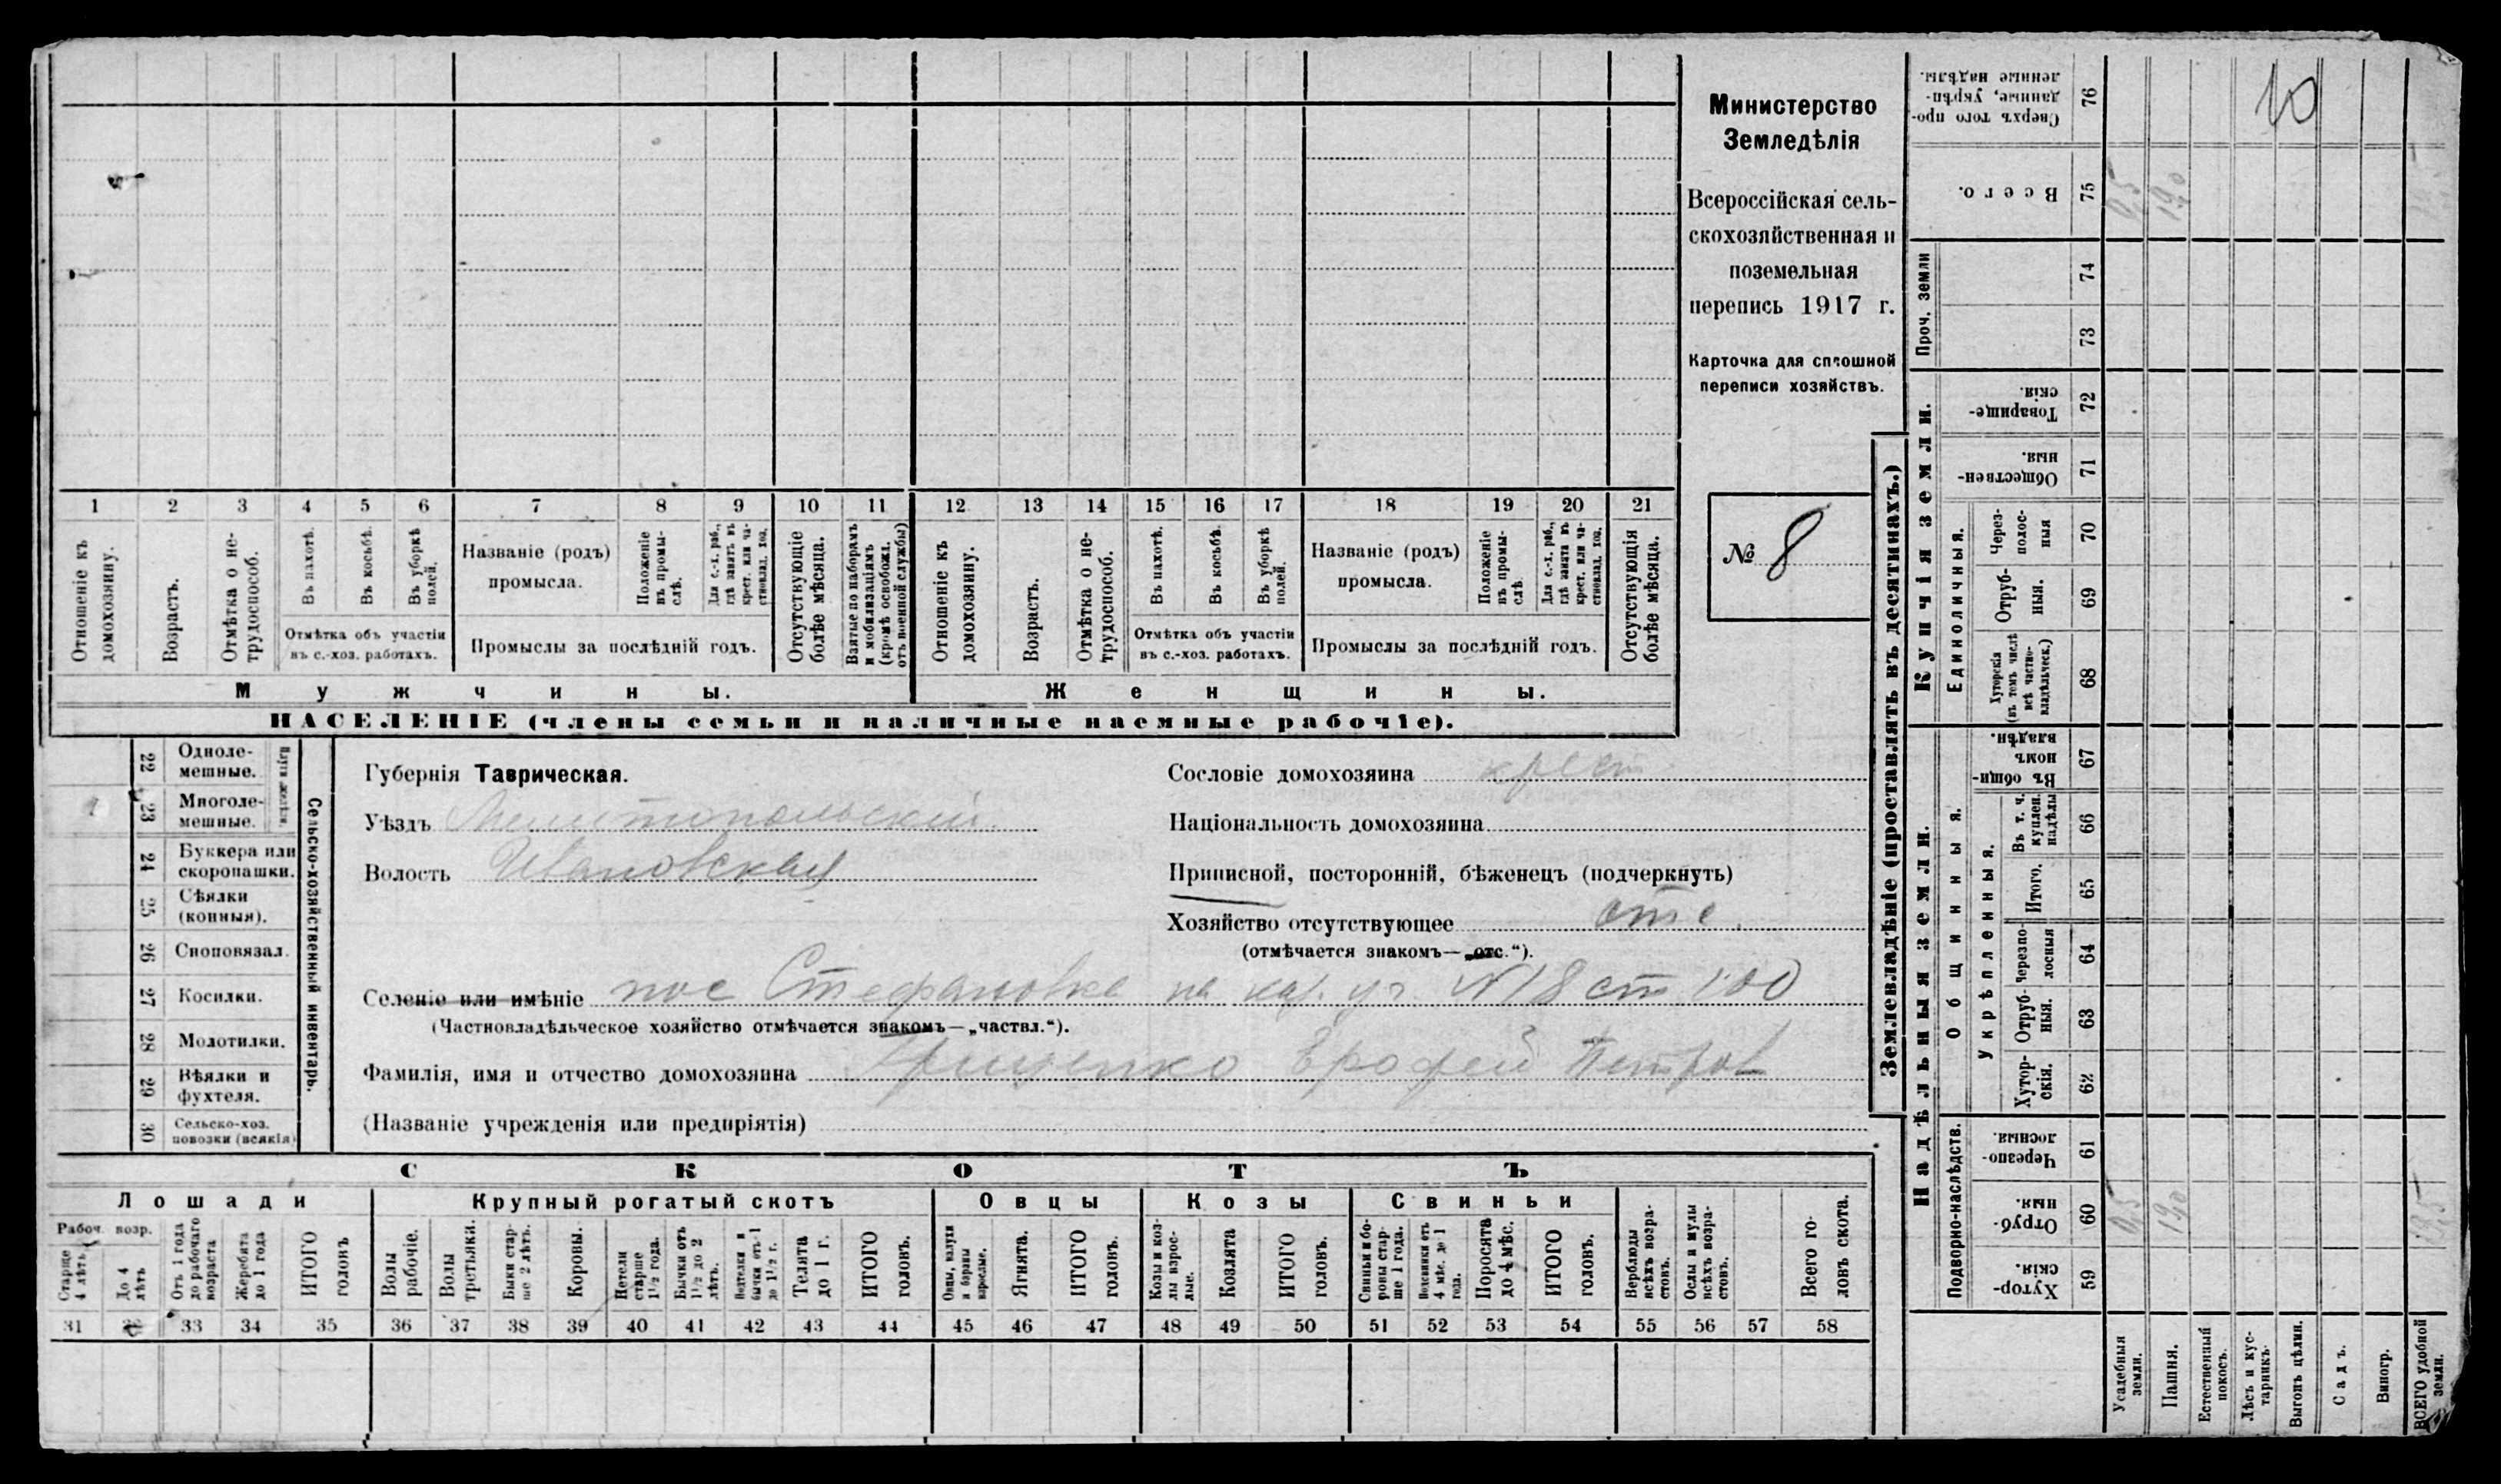 Министерство
Земледѣлія
Всероссійская сель-
скохозяйственная и
поземельная
перепись 1917 г.
Карточка для сплошной
переписи хозяйствъ.
№ 8
1 2 3 4 5 6 7 8 9 10 11 12 13 14 15 16 17 18 19 20 21
Отношеніе къ домохозяину.
Возрастъ.
Отмѣтка о не-трудоспособ.
Въ пахотѣ.
Въ косьбѣ.
Въ уборкѣ полей.
Отмѣтка объ участіи
въ с.-хоз. работахъ.
Названіе (родъ)
промысла.
Положеніе въ промы-слѣ.
Для с.-х. раб., гдѣ занятъ въ крест. или ча-стновлад. хоз.
Промыслы за послѣдній годъ.
Отсутствующіе болѣе мѣсяца.
Взятые по наборамъ и мобилизаціямъ (кромѣ освобожд. отъ военной службы)
Отношеніе къ домохозяину.
Возрастъ.
Отмѣтка о не-трудоспособ.
Въ пахотѣ.
Въ косьбѣ.
Въ уборкѣ полей.
Отмѣтка объ участіи
въ с.-хоз. работахъ.
Названіе (родъ)
промысла.
Положеніе въ промы-слѣ.
Для с.-х. раб., гдѣ занята въ крест. или ча-стновлад. хоз.
Промыслы за послѣдній годъ.
Отсутствующія болѣе мѣсяца.
Мужчины.
Женщины.
НАСЕЛЕНІЕ (члены семьи и наличные наемные рабочіе).
22 Одноле-
мешные.
23 Многоле-
мешные.
24 Буккера или
скоропашки.
25 Сѣялки
(конныя).
26 Сноповязал.
27 Косилки.
28 Молотилки.
29 Вѣялки и
фухтеля.
30 Сельско-хоз.
повозки (всякія)
Сельско-хозяйственный инвентарь.
Губернія Таврическая.
Уѣздъ Мелитопольскій.
Волость Ивановская
Сословіе домохозяина крест
Національность домохозяина
Приписной, посторонній, бѣженецъ (подчеркнуть)
Хозяйство отсутствующее отс.
(отмѣчается знакомъ—„отс.“).
Селеніе или имѣніе пос Стефановка на каз. уч. №18 ст 100
(Частновладѣльческое хозяйство отмѣчается знакомъ—„частвл.“).
Фамилія, имя и отчество домохозяина Грищенко Ерофей Петров
(Названіе учрежденія или предпріятія)
СКОТЪ
Лошади
Крупный рогатый скотъ
Овцы
Козы
Свиньи
Рабоч. возр.
Старше 4 лѣтъ.
До 4 лѣтъ
Отъ 1 года до рабочаго возраста
Жеребята до 1 года
ИТОГО головъ
Волы рабочіе.
Волы третьяки.
Быки стар-ше 2 лѣтъ.
Коровы.
Нетели старше 1½ года.
Бычки отъ 1½ до 2 лѣтъ.
Нетелки и бычки отъ 1 до 1½ г.
Телята до 1 г.
ИТОГО головъ.
Овцы, валухи и бараны взрослые.
Ягнята.
ИТОГО головъ.
Козы и коз-лы взрос-лые.
Козлята
ИТОГО головъ.
Свиньи и бо-ровы стар-ше 1 года.
Подсвинки отъ 4 мѣс. до 1 года.
Поросята до 4 мѣс.
ИТОГО головъ.
Верблюды всѣхъ возра-стовъ.
Ослы и мулы всѣхъ возра-стовъ.
Всего го-ловъ скота.
31 32 33 34 35 36 37 38 39 40 41 42 43 44 45 46 47 48 49 50 51 52 53 54 55 56 57 58
Землевладѣніе (проставлять въ десятинахъ.)
Надѣльныя земли.
Купчія земли.
Проч. земли
Сверхъ того про-
данные, укрѣп-
ленные надѣлы.
76
10
Всего.
75
0,5
19,0
74
73
Товарище-
скія.
72
Обществен-
ныя.
71
Единоличныя.
Через-полос-ныя
70
Отруб-ныя.
69
Хуторскія (въ томъ числѣ всѣ частно-владѣльческ.)
68
Общинныя.
Въ общин-
номъ
владѣн.
67
Укрѣпленныя.
Въ т. ч. куплен. надѣлы
66
Итого.
65
Черезпо-лосныя
64
Отруб-ныя.
63
Хутор-скія.
62
Подворно-наслѣдств.
Черезпо-
лосныя.
61
Отруб-
ныя.
60
0,5
19,0
19,5
Хутор-
скія.
59
Усадебныя земли.
Пашня.
Естественный покосъ.
Лѣсъ и кус-тарникъ.
Выгонъ цѣлин.
Садъ.
Виногр.
ВСЕГО удобной земли.